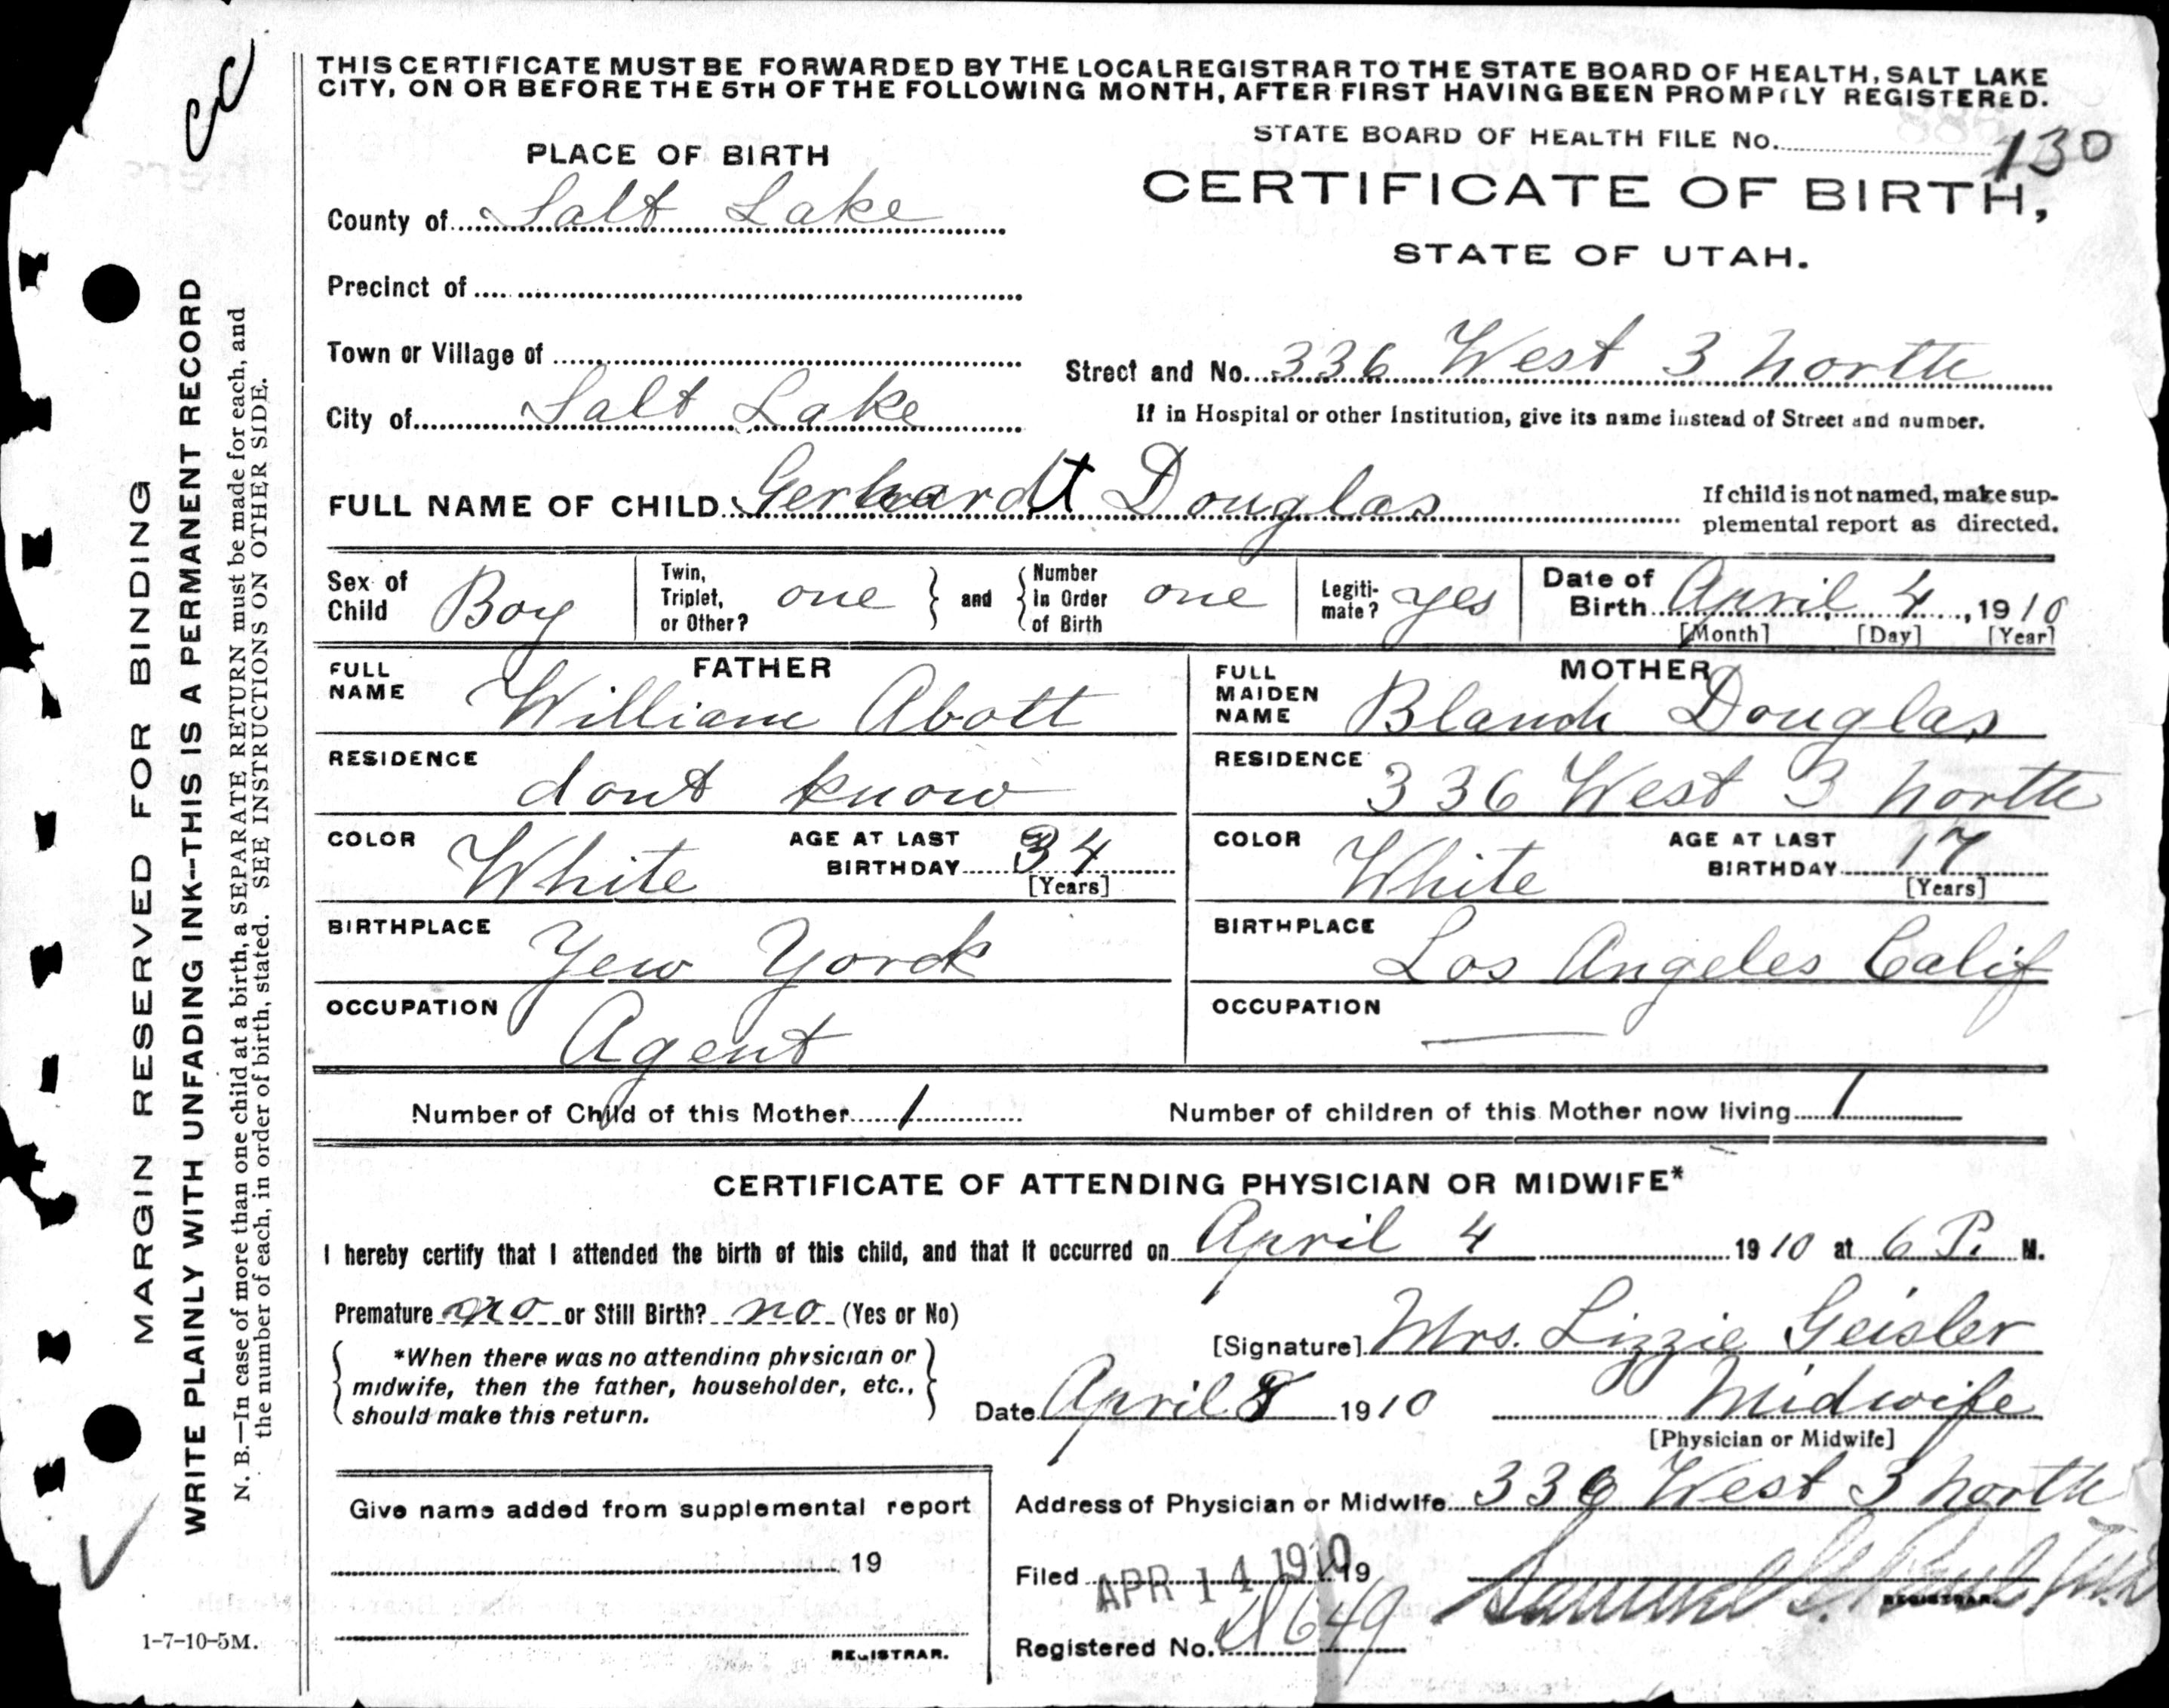 THIS CERTIFICATE MUST BE FORWARDED BY THE LOCAL REGISTRAR TO THE STATE BOARD OF HEALTH, SALT LAKE
CITY, ON OR BEFORE THE 5TH OF THE FOLLOWING MONTH, AFTER FIRST HAVING BEEN PROMPTLY REGISTERED.
STATE BOARD OF HEALTH FILE No. 130
PLACE OF BIRTH
CERTIFICATE OF BIRTH,
STATE OF UTAH.
County of Salt Lake
Precinct of
Town or Village of
Street and No. 336 West 3 North
City of Salt Lake
If in Hospital or other Institution, give its name instead of Street and number.
FULL NAME OF CHILD Gerhardt Douglas
If child is not named, make sup-
plemental report as directed.
Sex of Child Boy
Twin, Triplet, or Other? one and Number in Order of Birth one
Legiti-mate? yes
Date of Birth April 4, 1910
[Month] [Day] [Year]
FATHER
FULL NAME William Abott
MOTHER
FULL MAIDEN NAME Blanch Douglas
RESIDENCE dont know
RESIDENCE 336 West 3 North
COLOR White AGE AT LAST BIRTHDAY 34 [Years]
COLOR White AGE AT LAST BIRTHDAY 17 [Years]
BIRTHPLACE Yew York
BIRTHPLACE Los Angeles Calif
OCCUPATION Agent
OCCUPATION —
Number of Child of this Mother 1
Number of children of this Mother now living 1
CERTIFICATE OF ATTENDING PHYSICIAN OR MIDWIFE*
I hereby certify that I attended the birth of this child, and that it occurred on April 4 1910 at 6 P. M.
Premature no or Still Birth? no (Yes or No)
[Signature] Mrs. Lizzie Geisler
*When there was no attending physician or
midwife, then the father, householder, etc.,
should make this return.
Date April 8 1910 Midwife
[Physician or Midwife]
Give name added from supplemental report
19
REGISTRAR.
Address of Physician or Midwife 336 West 3 North
Filed APR 14 1910 19
Samuel G. Paul M.D.
REGISTRAR.
Registered No. 649
MARGIN RESERVED FOR BINDING
WRITE PLAINLY WITH UNFADING INK--THIS IS A PERMANENT RECORD
N. B.—In case of more than one child at a birth, a SEPARATE RETURN must be made for each, and
the number of each, in order of birth, stated. SEE INSTRUCTIONS ON OTHER SIDE.
1-7-10-5M.